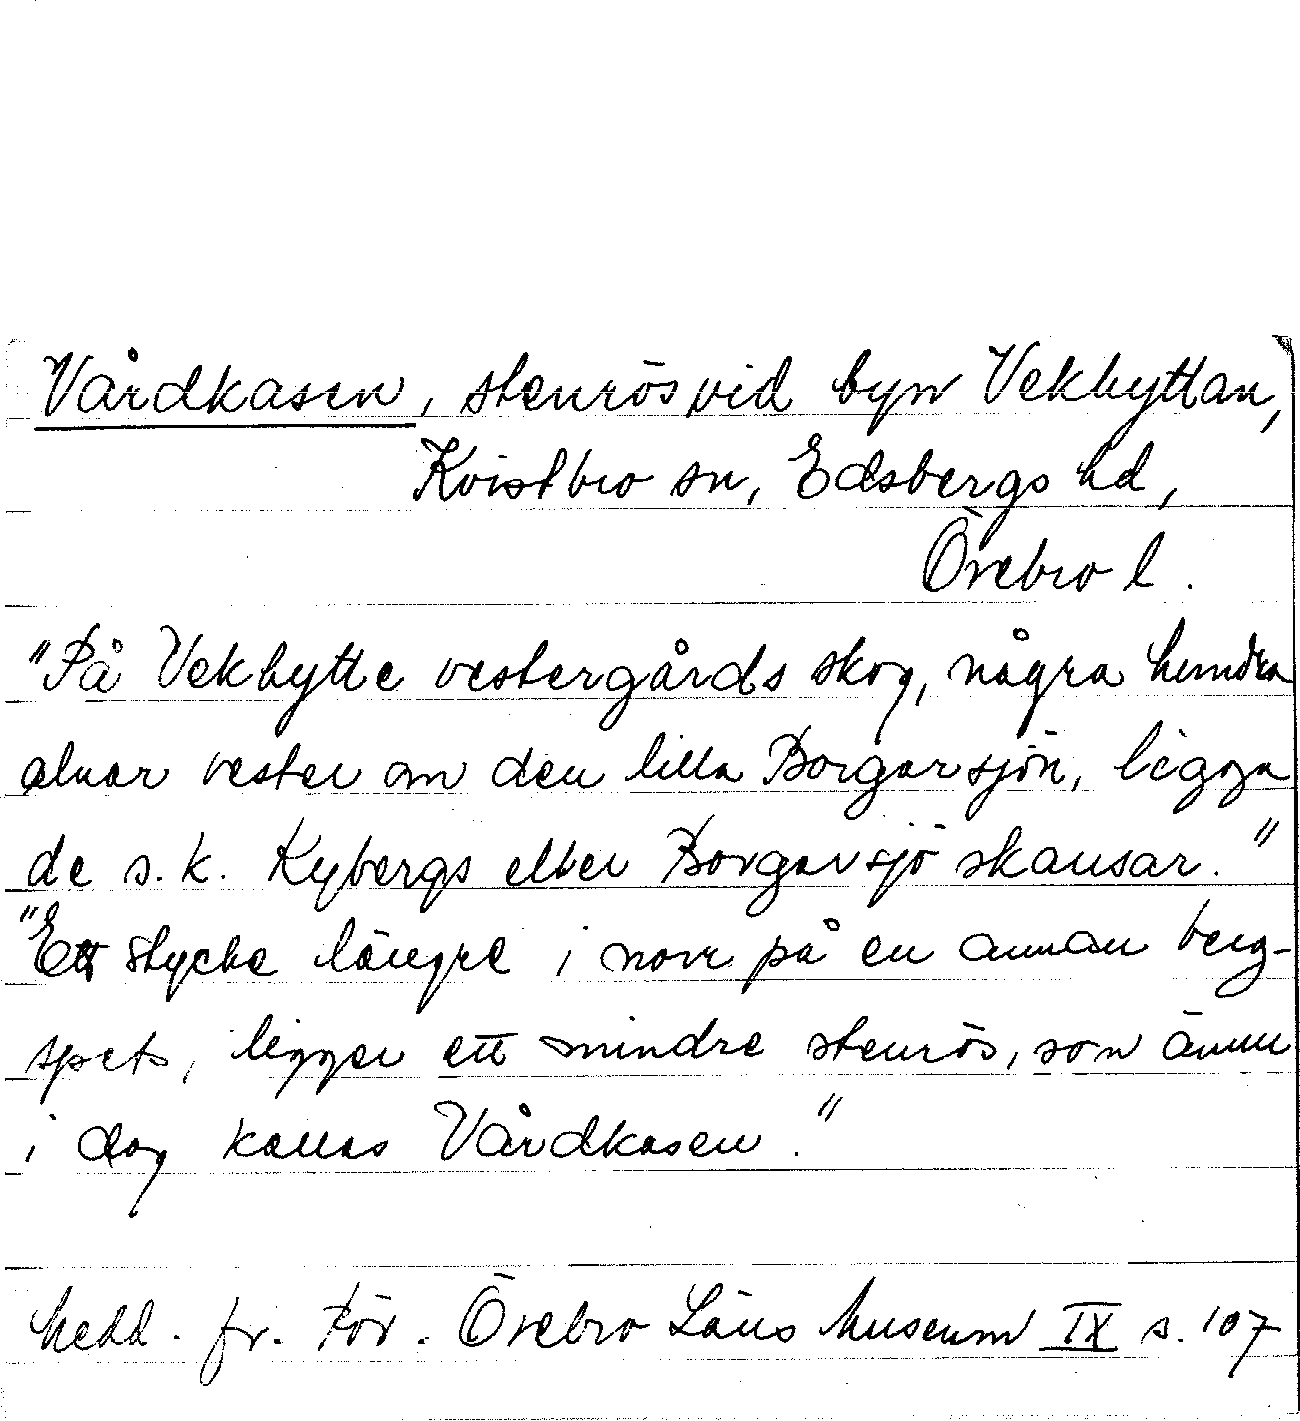 Vårdkasen, stenrös vid byn Vekhyttan,
Kvistbro sn, Edsbergs hd,
Örebro l.
"På Vekhytte vestergårds skog, några hundra
alnar vester om den lilla Borgarsjön, ligga
de s.k. Kybergs eller Borgarsjö skansar."
"Ett stycke längre i norr på en annan berg-
spets, ligger ett mindre stenrös, som ännu
i dag kallas Vårdkasen."
Medd. fr. För. Örebro Läns Museum IX s. 107